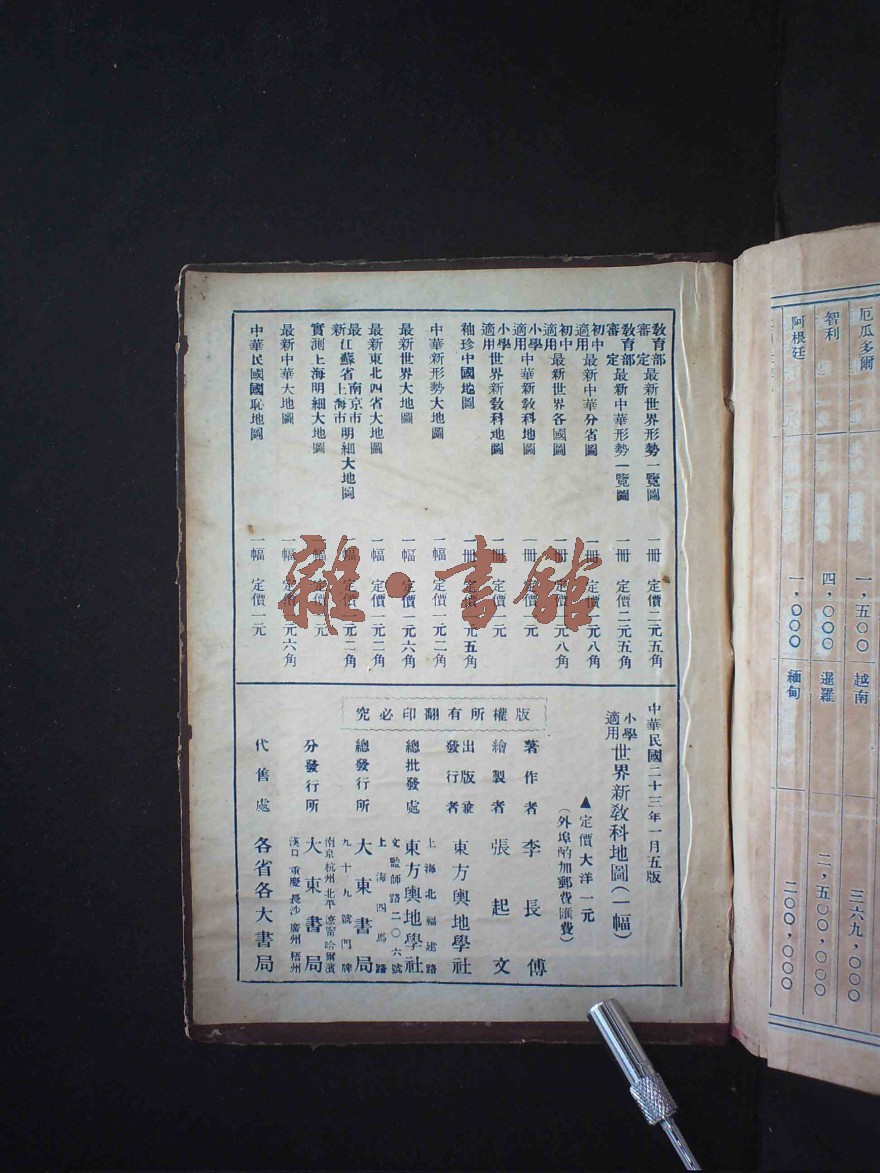 教育部審定 最新世界形勢一覽圖 一冊 定價二元五角
教育部審定 最新中華形勢一覽圖 一冊 定價二元五角
初中適用 最新中華分省圖 一冊 定價 元八角
初中適用 最新世界各國圖 一冊 定價 元八角
小學適用 中華新教科地圖 一冊 定價一元
小學適用 世界新教科地圖 一冊 定價一元
袖珍中國地圖 一冊 定價 元五角
中華新形勢大地圖 一幅 定價一元二角
最新世界大地圖 一幅 定價一元六角
最新東北四省大地圖 一幅 定價一元二角
最新江蘇省南京市上海市明細大地圖 一幅 定價一元二角
實測上海明細大地圖 一幅 定價一元
最新中華大地圖 一幅 定價一元六角
中華民國國恥地圖 一幅 定價一元
中華民國二十三年一月五版
小學適用 世界新教科地圖(一幅)
▲定價大洋一元
(外埠酌加郵費匯費)
版權所有翻印必究
著作者 李長傅
繪製者 張起文
出版兼發行者 東方輿地學社
上海北福建路
總批發處 東方輿地學社
文監師路二〇六號
上海四馬路
總發行所 大東書局
九十九號門牌
南京杭州北平遼甯哈爾濱
分發行所 大東書局
漢口重慶長沙廣州梧州
代售處 各省各大書局
厄瓜多爾 一,五〇〇 越南 三六九,〇〇〇
智利 四,〇〇〇 暹羅 二,五〇〇,〇〇〇
阿根廷 一,〇〇〇 緬甸 二〇〇,〇〇〇
雜·書館